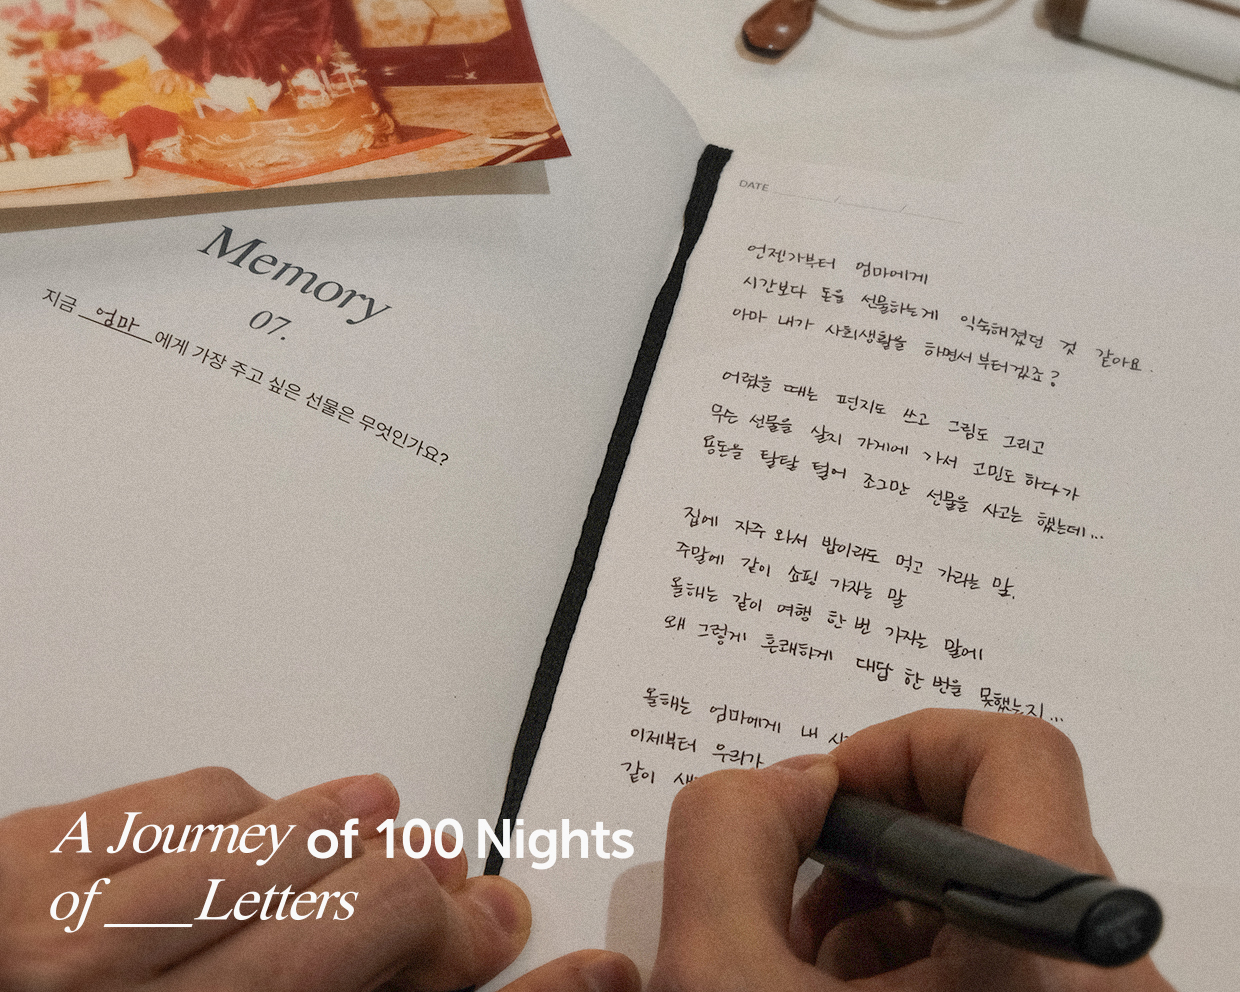 Memory
07.
지금 엄마에게 가장 주고 싶은 선물은 무엇인가요?
DATE / /
언젠가부터 엄마에게
시간보다 돈을 선물하는게 익숙해졌던 것 같아요.
아마 내가 사회생활을 하면서부터겠죠?
어렸을 때는 편지도 쓰고 그림도 그리고
무슨 선물을 살지 가게에 가서 고민도 하다가
용돈을 탈탈 털어 조그만 선물을 사고는 했는데...
집에 자주 와서 밥이라도 먹고 가라는 말.
주말에 같이 쇼핑 가자는 말
올해는 같이 여행 한 번 가자는 말에
왜 그렇게 흔쾌하게 대답 한 번을 못했는지...
올해는 엄마에게 내
이제부터 우리가
같이
A Journey of 100 Nights
of ___Letters